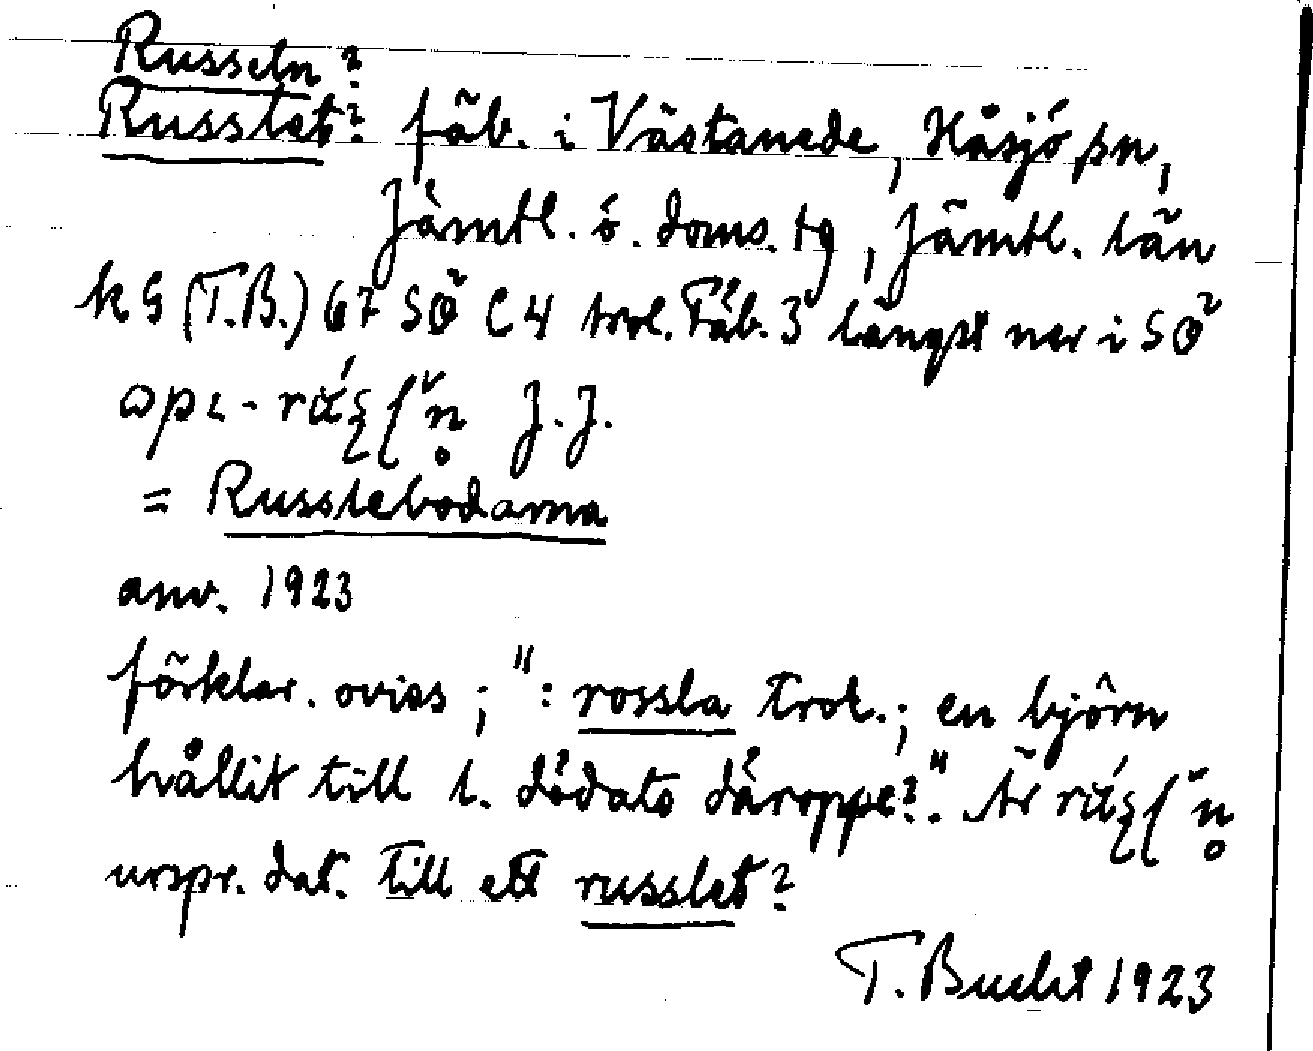 Russeln?
Russlet? fäb. i Västanede, Håsjö sn,
Jämtl. ö. doms. tg, Jämtl. län
k G (T.B.) 67 SÖ C 4 trol. Fäb. 3 längst ner i SÖ
= Russlebodarna
anv. 1923
förklar. oviss; ": rossla trol.; en björn
hållit till l. dödats däroppe?". Är
urspr. dat. till ett russlet?
T. Bucht 1923